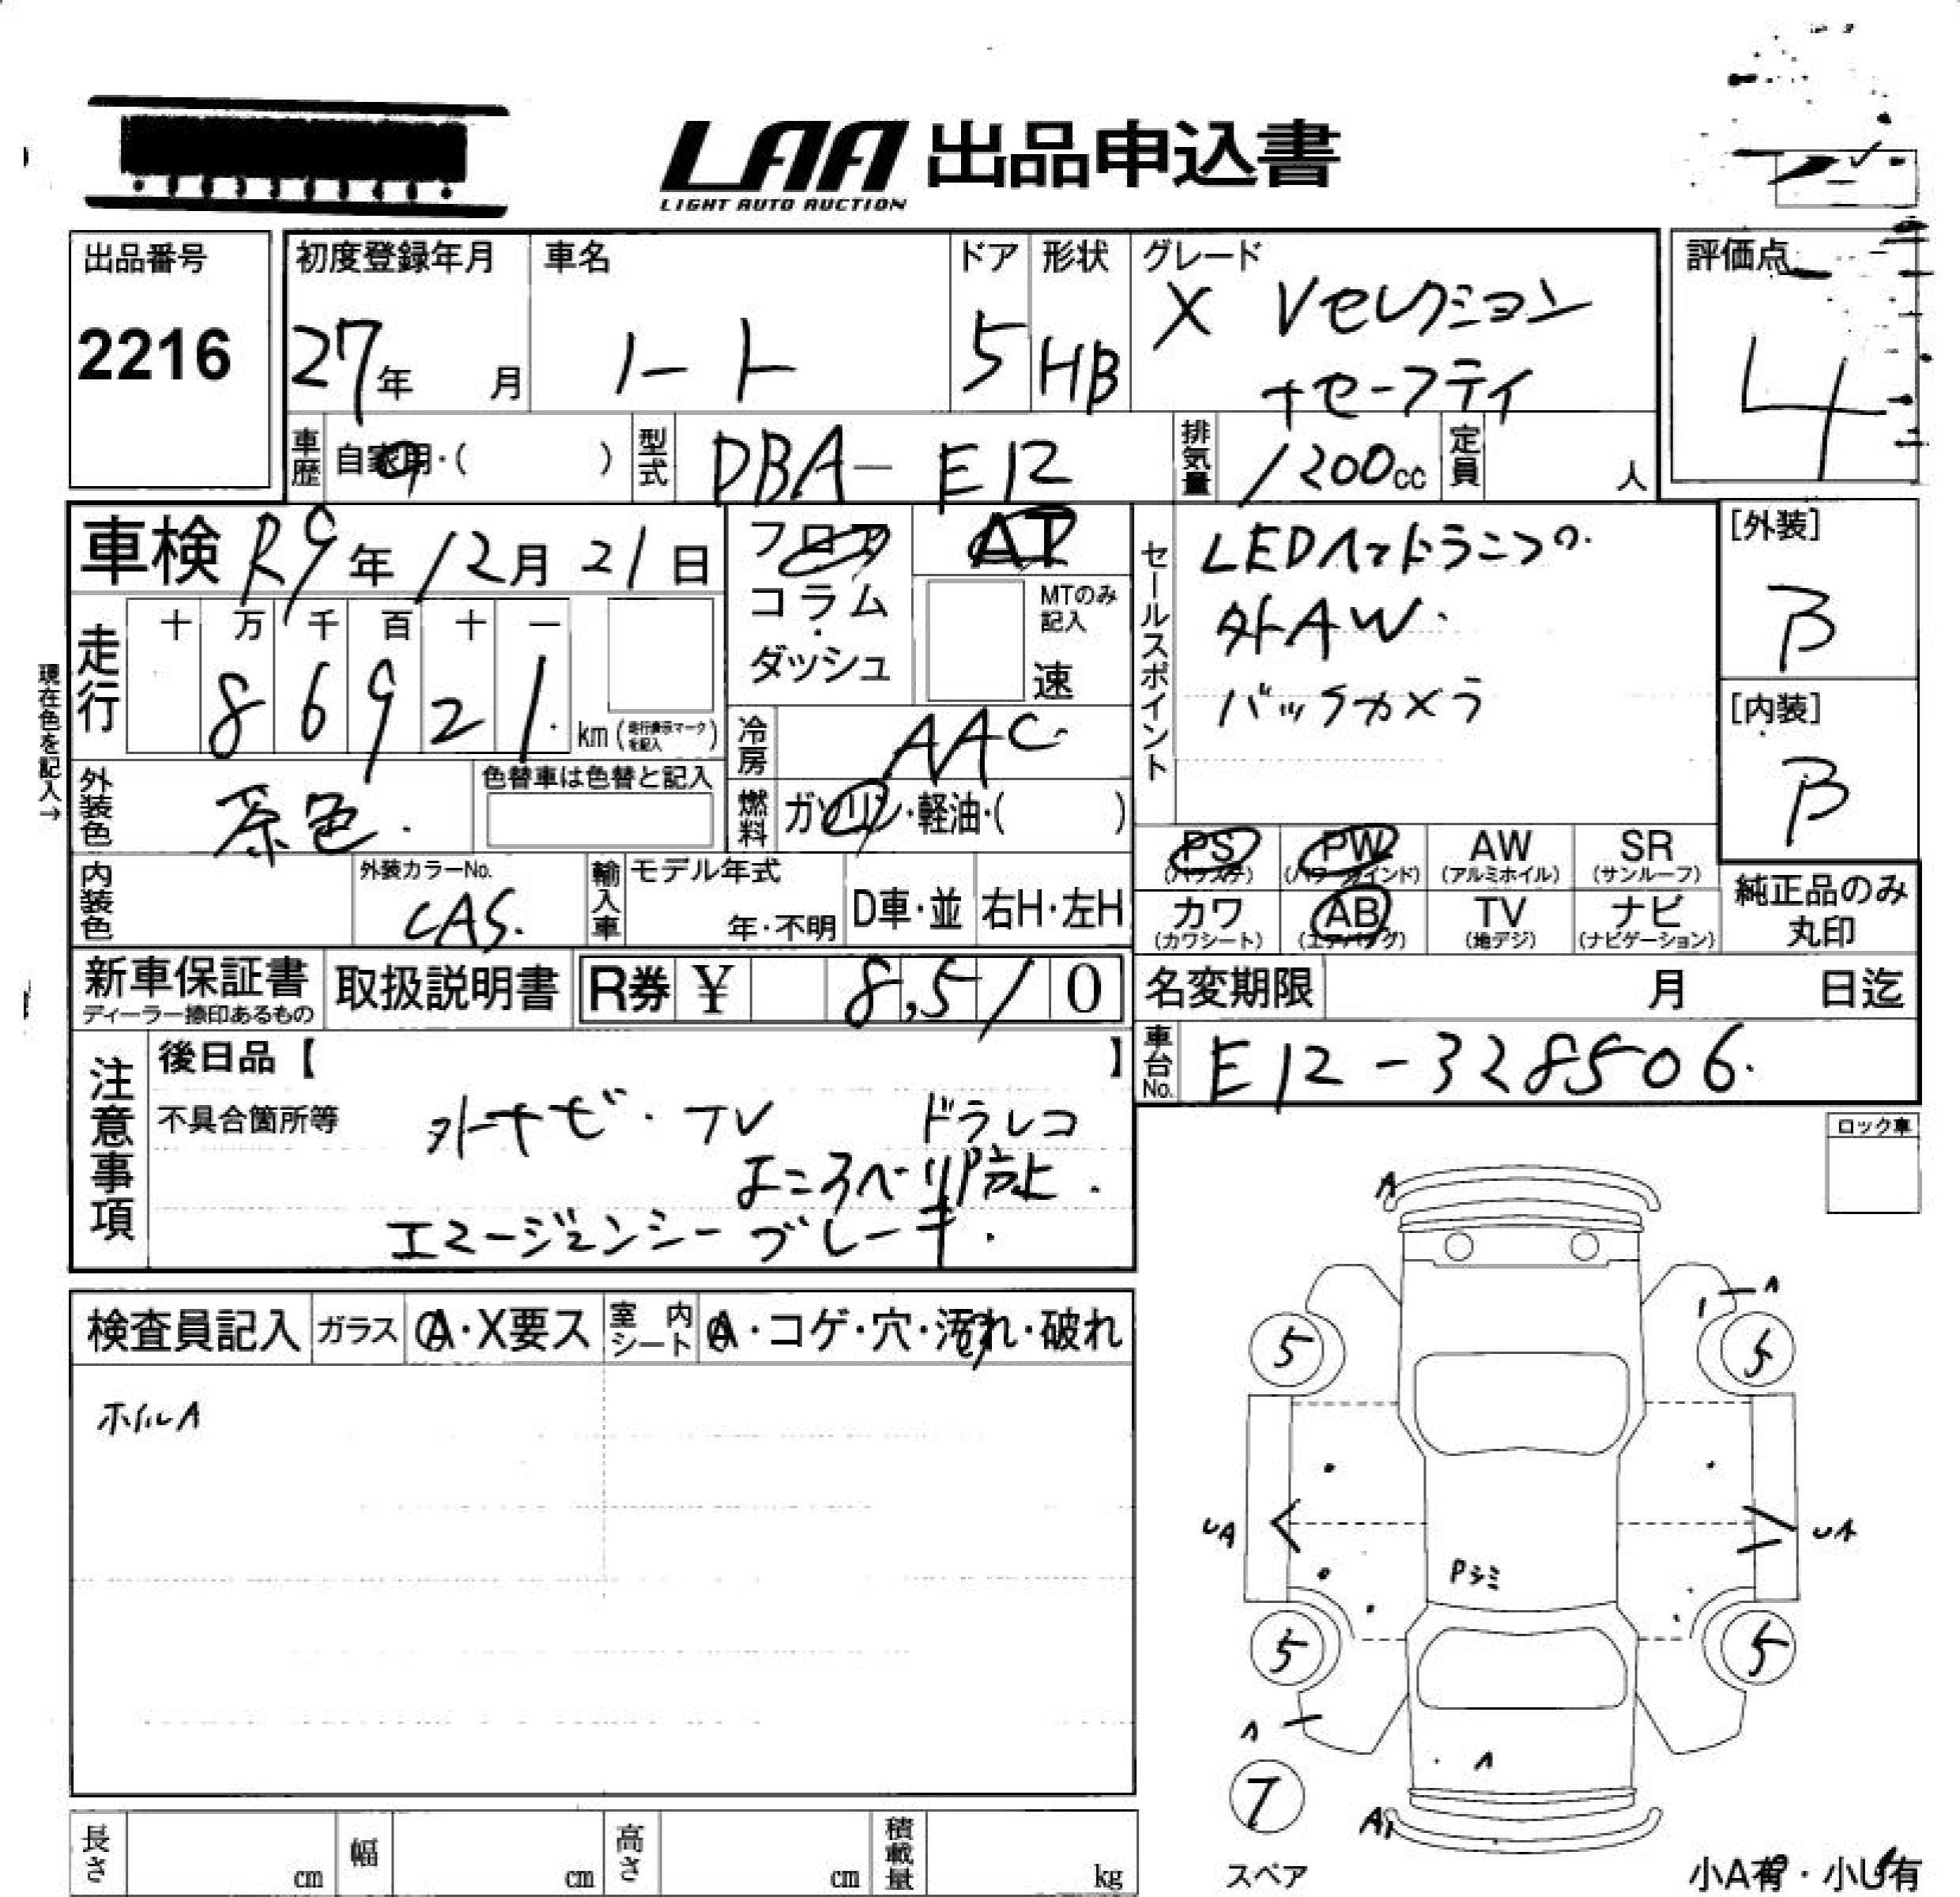 LAA 出品申込書
LIGHT AUTO AUCTION
出品番号
2216
初度登録年月
27年 月
車名
ノート
ドア
5
形状
HB
グレード
X Vセレクション
+セーフティ
評価点
4
車歴 自家用・( )
型式 DBA-E12
排気量 1200cc
定員 人
車検 R9年12月21日
走行 十 万 千 百 十 一
86921
km (走行表示マークを記入)
現在色を記入→
外装色 茶色.
色替車は色替と記入
内装色
外装カラーNo.
CAS.
輸入車 モデル年式
年・不明
D車・並 右H・左H
フロア
コラム
・
ダッシュ
AT
MTのみ記入
速
冷房 AAC
燃料 ガソリン・軽油・( )
セールスポイント
外AW.
バックカメラ
[外装]
B
[内装]
B
PS PW AW SR
(パワステ) (パワーウインド) (アルミホイル) (サンルーフ)
カワ AB TV ナビ
(カワシート) (エアバッグ) (地デジ) (ナビゲーション)
純正品のみ
丸印
新車保証書
ディーラー捺印あるもの
取扱説明書
R券 ¥ 8,510
名変期限 月 日迄
車台No. E12-328506.
注意事項
後日品【 】
不具合箇所等
外ナビ・TV ドラレコ
よこすべり防止.
エマージェンシーブレーキ.
ロック車
検査員記入 ガラス A・X要ス 室内シート A・コゲ・穴・汚れ・破れ
ホイルA
A
A
5 5
UA UA
Pシミ
5 5
A
A
7
A
スペア
小A有・小U有
長さ cm 幅 cm 高さ cm 積載量 kg